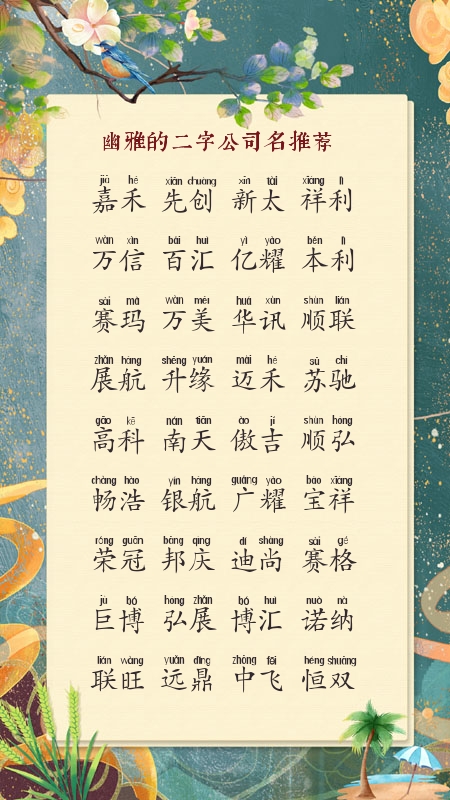 幽雅的二字公司名推荐
jiā hé xiān chuàng xīn tài xiáng lì
嘉禾 先创 新太 祥利
wàn xìn bǎi huì yì yào běn lì
万信 百汇 亿耀 本利
sài mǎ wàn měi huá xùn shùn lián
赛玛 万美 华讯 顺联
zhǎn háng shēng yuán mài hé sū chí
展航 升缘 迈禾 苏驰
gāo kē nán tiān ào jí shùn hóng
高科 南天 傲吉 顺弘
chàng hào yín háng guǎng yào bǎo xiáng
畅浩 银航 广耀 宝祥
róng guān bāng qìng dí shàng sài gé
荣冠 邦庆 迪尚 赛格
jù bó hóng zhǎn bó huì nuò nà
巨博 弘展 博汇 诺纳
lián wàng yuǎn dǐng zhōng fēi héng shuāng
联旺 远鼎 中飞 恒双